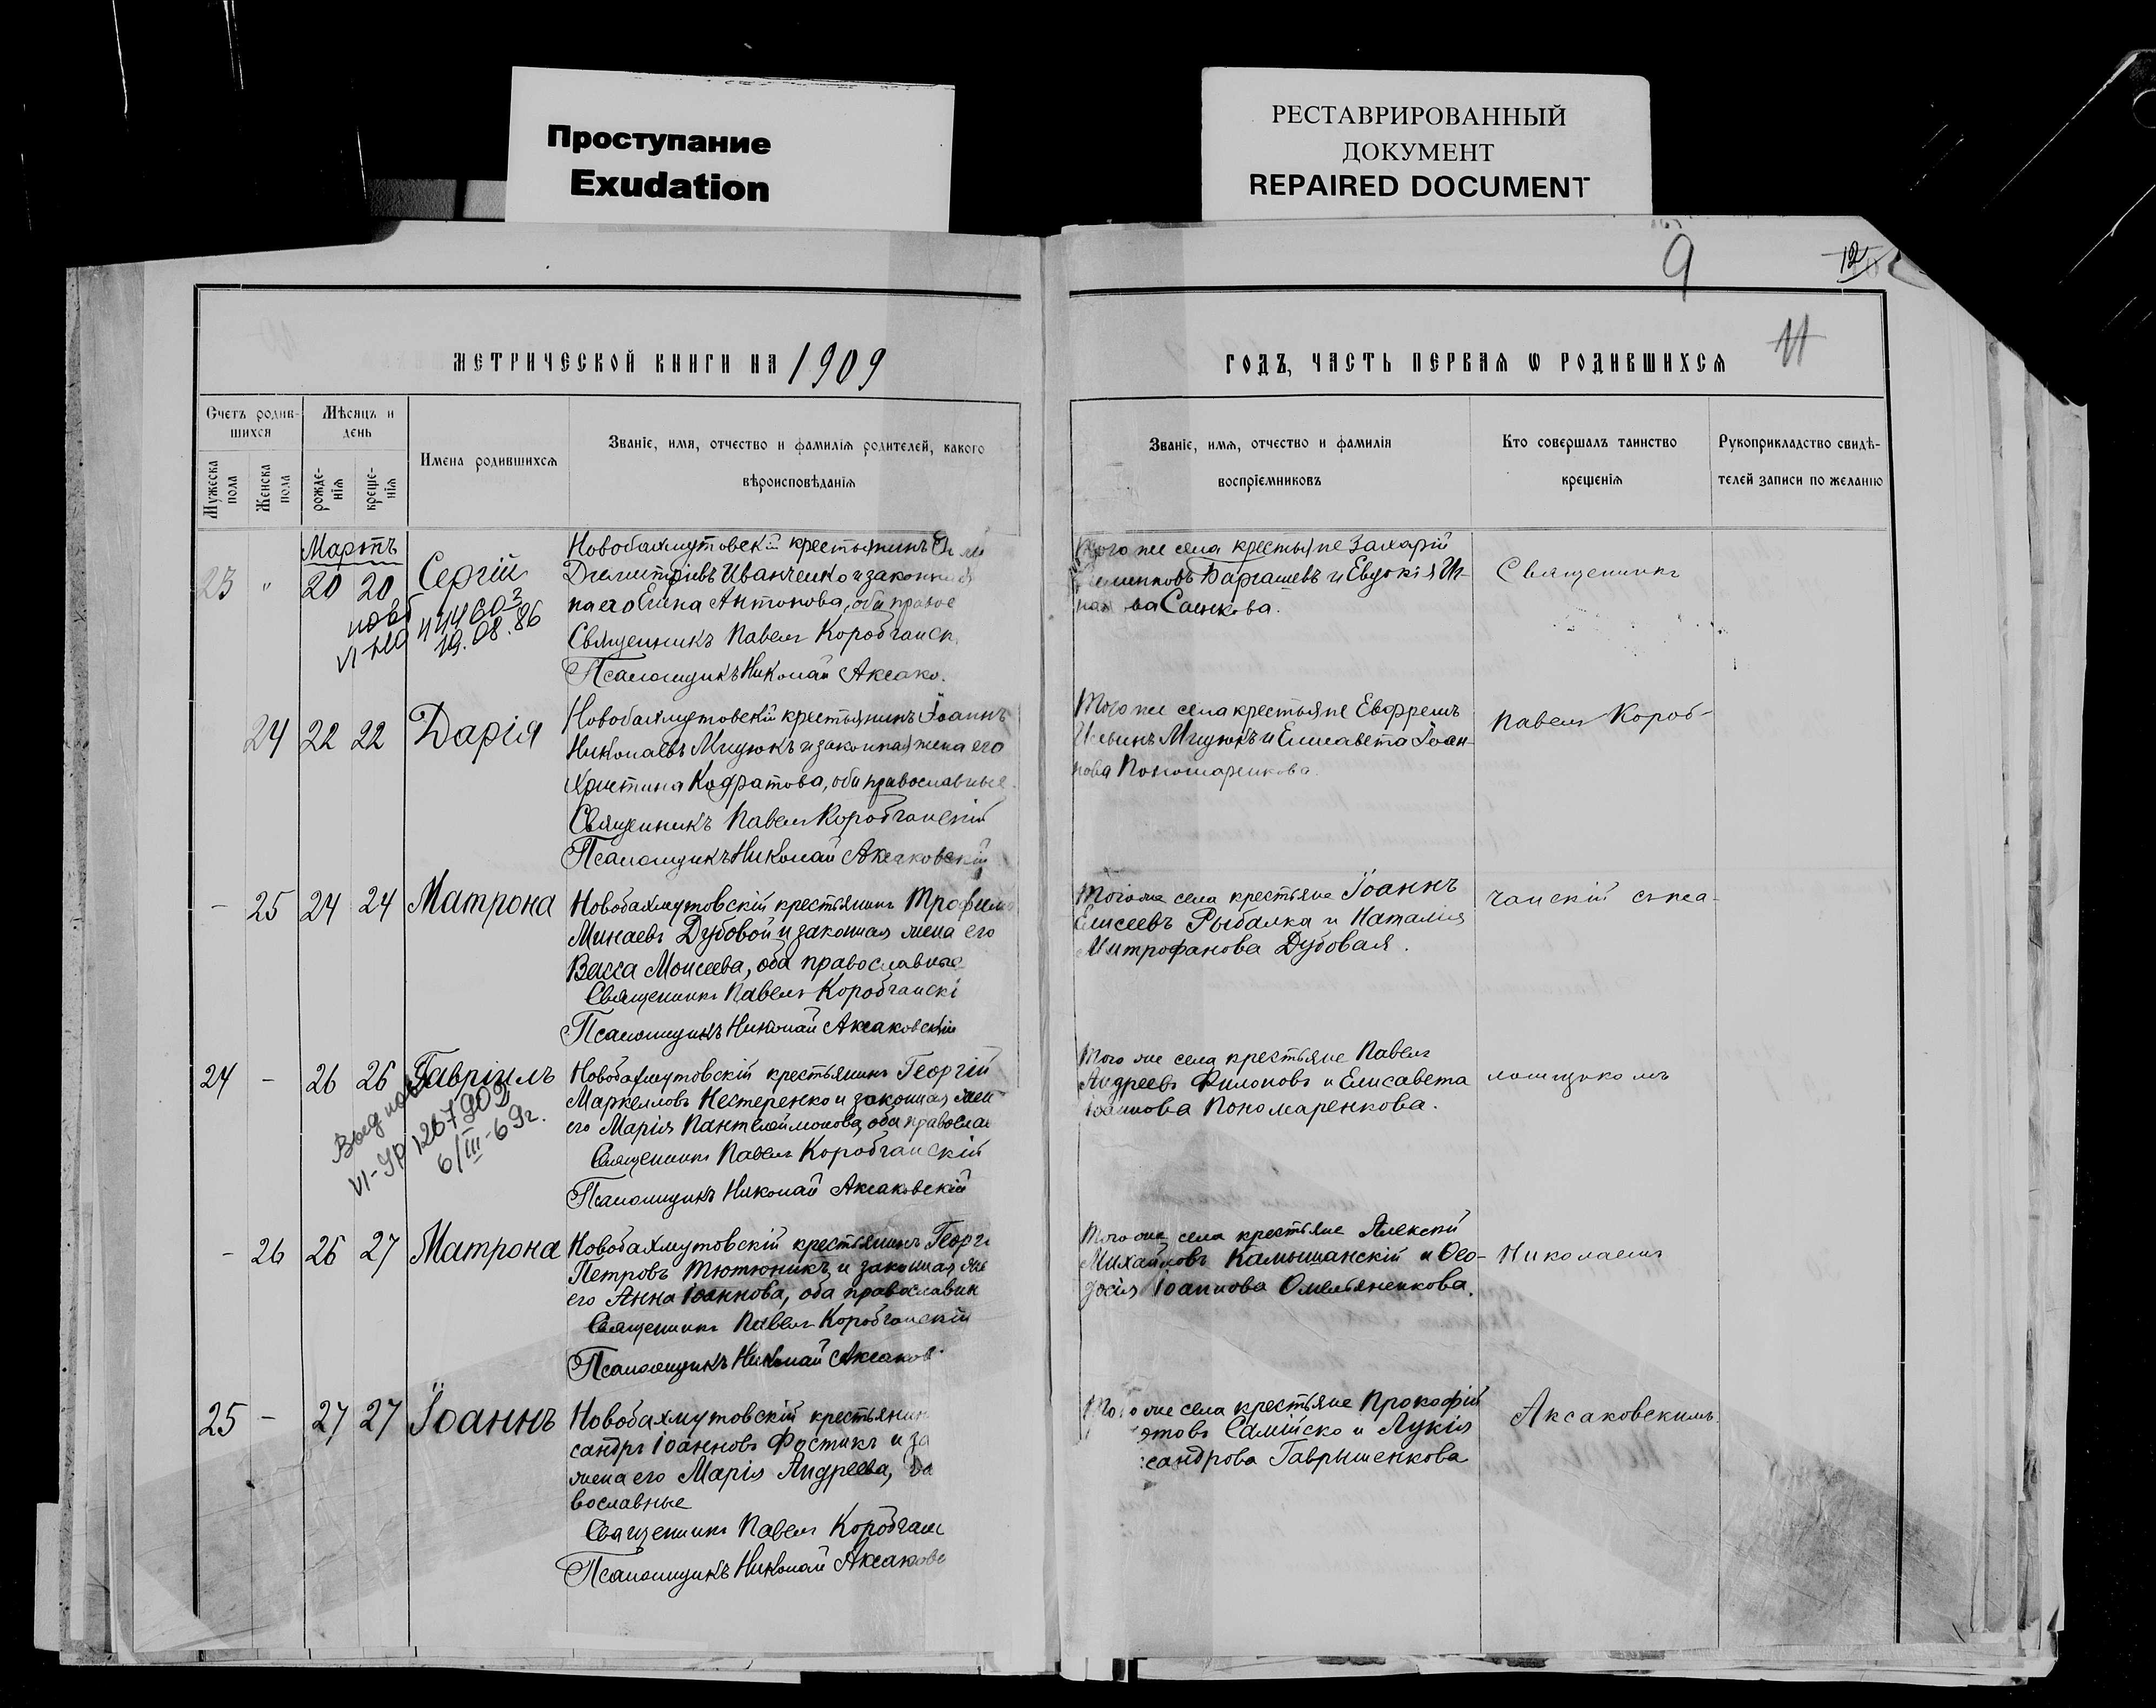 Проступание
Exudation
РЕСТАВРИРОВАННЫЙ
ДОКУМЕНТ
REPAIRED DOCUMENT
9
12
11
МЕТРИЧЕСКОЙ КНИГИ НА 1909
ГОДЪ, ЧАСТЬ ПЕРВАЯ Ѡ РОДИВШИХСЯ
Счетъ родив-
шихся
Мужеска
пола
Женска
пола
Мѣсяцъ и
день
рожде-
нія
креще-
нія
Имена родившихся
Званіе, имя, отчество и фамилія родителей, какого
вѣроисповѣданія
Званіе, имя, отчество и фамилія
воспріємниковъ
Кто совершалъ таинство
крещенія
Рукоприкладство свидѣ-
телей записи по желанію
Мартъ
23 " 20 20 Сергій
19.08.86
Новобахмутовскій крестьянинъ
Димитріевъ Иванченко и законна
на его Елена Антонова, оба правос
Священникъ Павелъ Коробчанск
Псаломщикъ Николай Аксако
того же села крестьяне Захарій
Баргашевъ и Евдокія Иг-
ва Саенкова.
Священникъ
24 22 22 Дарія
Новобахмутовскій крестьянинъ Іоаннъ
Николаевъ Мицюкъ и законная жена его
Христина Кодратова, оба православные
Священникъ Павелъ Коробчанскій
Псаломщикъ Николай Аксаковскій
Того же села крестьяне Евфремъ
Ильинъ Мицюкъ и Елисавета Іоан-
нова Пономаренкова.
Павелъ Короб-
- 25 24 24 Матрона
Новобахмутовскій крестьянинъ Трофимъ
Минаевъ Дубовой и законная жена его
Васса Моисеева, оба православные
Священникъ Павелъ Коробчанскі
Псаломщикъ Николай Аксаковскій
Того же села крестьяне Іоаннъ
Елисеевъ Рыбалка и Наталія
Митрофанова Дубовая.
чанскій съ пса-
24 - 26 26 Гавріилъ
VI-УР 1267909
6/III-69г.
Новобахмутовскій крестьянинъ Георгій
Маркелловъ Нестеренко и законная жен
его Марія Пантелеймонова, оба православ
Священникъ Павелъ Коробчанскій
Псаломщикъ Николай Аксаковскій
Того же села крестьяне Павелъ
Андреевъ Филоновъ и Елисавета
Іоаннова Пономаренкова.
ломщикомъ
- 26 26 27 Матрона
Новобахмутовскій крестьянинъ Георгі
Петровъ Тютюникъ и законная же
его Анна Іоаннова, оба православн
Священникъ Павелъ Коробчанскій
Псаломщикъ Николай Аксаков
Того же села крестьяне Алексій
Михайловъ Камышанскій и Ѳео-
досія Іоаннова Омельяненкова.
Николаемъ
25 - 27 27 Іоаннъ
Новобахмутовскій крестьянин
сандръ Іоанновъ Фостикъ и за
жена его Марія Андреева,
вославные
Священникъ Павелъ Коробчанс
Псаломщикъ Николай Аксаковс
Того же села крестьяне Прокофій
Самійско и Лукія
сандрова Гаврышенкова
Аксаковскимъ.